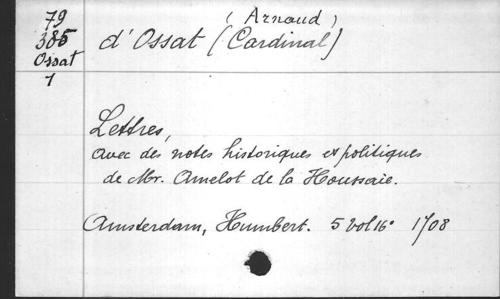 79
385
Ossat
1
(Arnaud)
d'Ossat (Cardinal)
Lettres,
avec des notes historiques et politiques
de Mr. Amelot de la Houssaie.
Amsterdam, Humbert. 5 vol 16° 1708